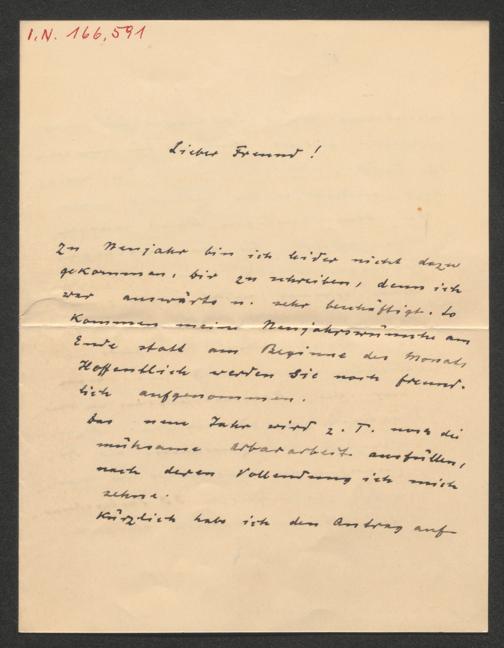 I.N. 166,591
Lieber Freund!
Zu Neujahr bin ich leider nicht dazu
gekommen, Dir zu schreiben, denn ich
war auswärts u. sehr beschäftigt. So
kommen meine Neujahrswünsche am
Ende statt am Beginne des Monats
Hoffentlich werden Sie noch freund-
lich aufgenommen.
Das neue Jahr wird z. T. noch die
mühsame ausfüllen,
nach deren Vollendung ich mich
sehne.
Kürzlich habe ich den Antrag auf